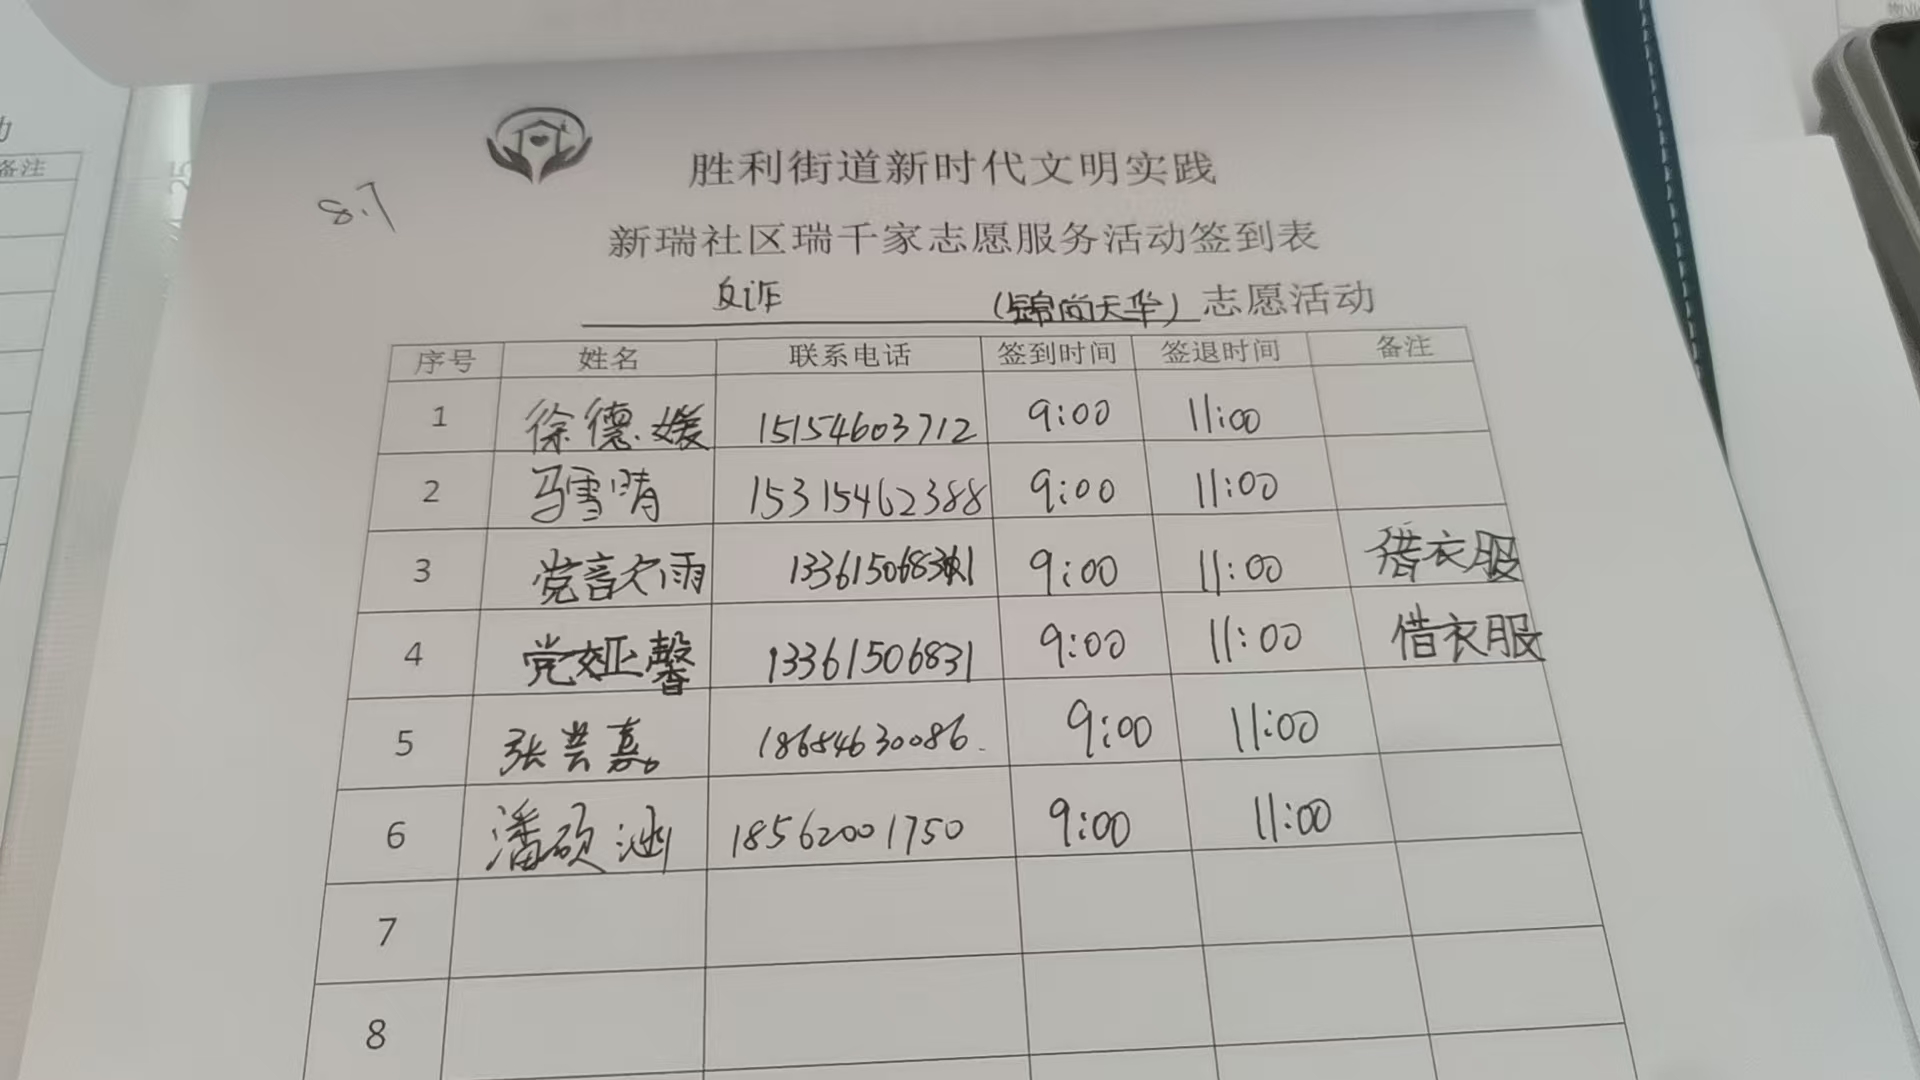 备注
8.7
胜利街道新时代文明实践
新瑞社区瑞千家志愿服务活动签到表
反诈 (锦尚天华) 志愿活动
序号 姓名 联系电话 签到时间 签退时间 备注
1 徐德媛 15154603712 9:00 11:00
2 马雪晴 15315462388 9:00 11:00
3 党音文雨 9:00 11:00 借衣服
4 党娅馨 13361506831 9:00 11:00 借衣服
5 张芸嘉 18654630086. 9:00 11:00
6 潘硕涵 18562001750 9:00 11:00
7
8